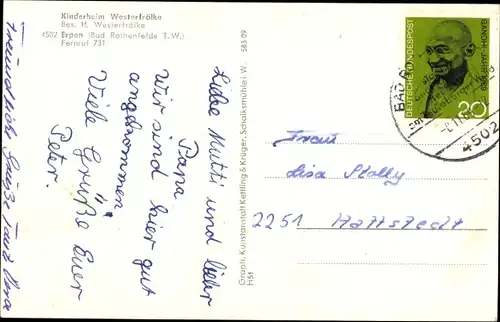 Kinderheim Westerfrölke
Bes. H. Westerfrölke
4502 Erpen (Bad Rothenfelde T.W.)
Fernruf 731
583 09
Liebe Mutti und lieber
Papa
Wir sind hier gut
angekommen
Viele Grüße Euer
Peter.
Freundliche Grüße Tante
Graph. Kunstanstalt Kettling & Krüger, Schalksmühle i. W.
H51
DEUTSCHE BUNDESPOST
GANDHI-JAHR 1969
20
BAD
4502
Lisa
2251 Hattstedt